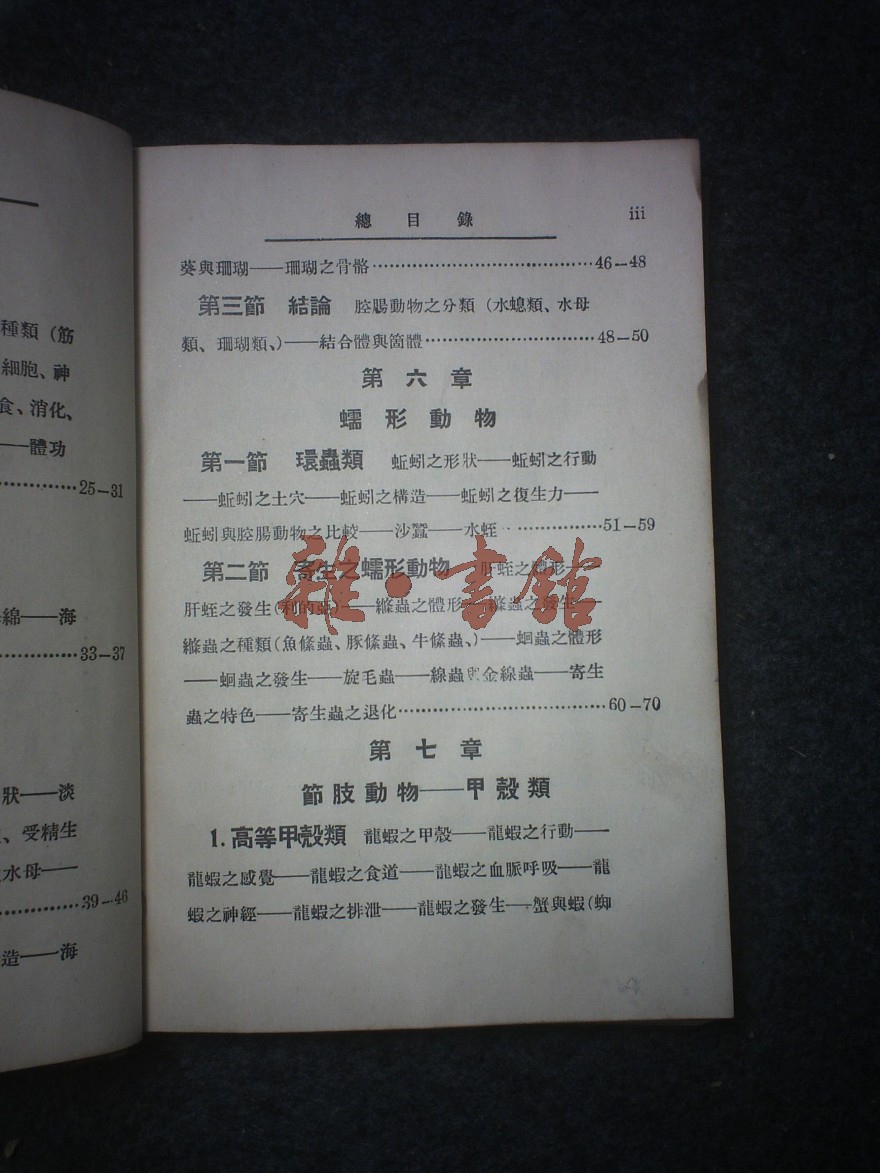 種類（筋
細胞、神
食、消化、
——體功
…………25—31
綿——海
…………33—37
狀——淡
、受精生
水母——
…………39—46
造——海
總目錄 iii
葵與珊瑚——珊瑚之骨骼…………46—48
第三節 結論 腔腸動物之分類（水螅類、水母
類、珊瑚類、）——結合體與箇體…………48—50
第六章
蠕形動物
第一節 環蟲類 蚯蚓之形狀——蚯蚓之行動
——蚯蚓之土穴——蚯蚓之構造——蚯蚓之復生力——
蚯蚓與腔腸動物之比較——沙蠶——水蛭…………51—59
第二節 寄生之蠕形動物 肝蛭之體形——
肝蛭之發生（利的亞）——縧蟲之體形——縧蟲之發生——
縧蟲之種類（魚縧蟲、豚縧蟲、牛縧蟲、）——蛔蟲之體形
——蛔蟲之發生——旋毛蟲——線蟲與金線蟲——寄生
蟲之特色——寄生蟲之退化…………60—70
第七章
節肢動物——甲殼類
1. 高等甲殼類 龍蝦之甲殼——龍蝦之行動——
龍蝦之感覺——龍蝦之食道——龍蝦之血脈呼吸——龍
蝦之神經——龍蝦之排泄——龍蝦之發生——蟹與蝦（蜘
雜·書館